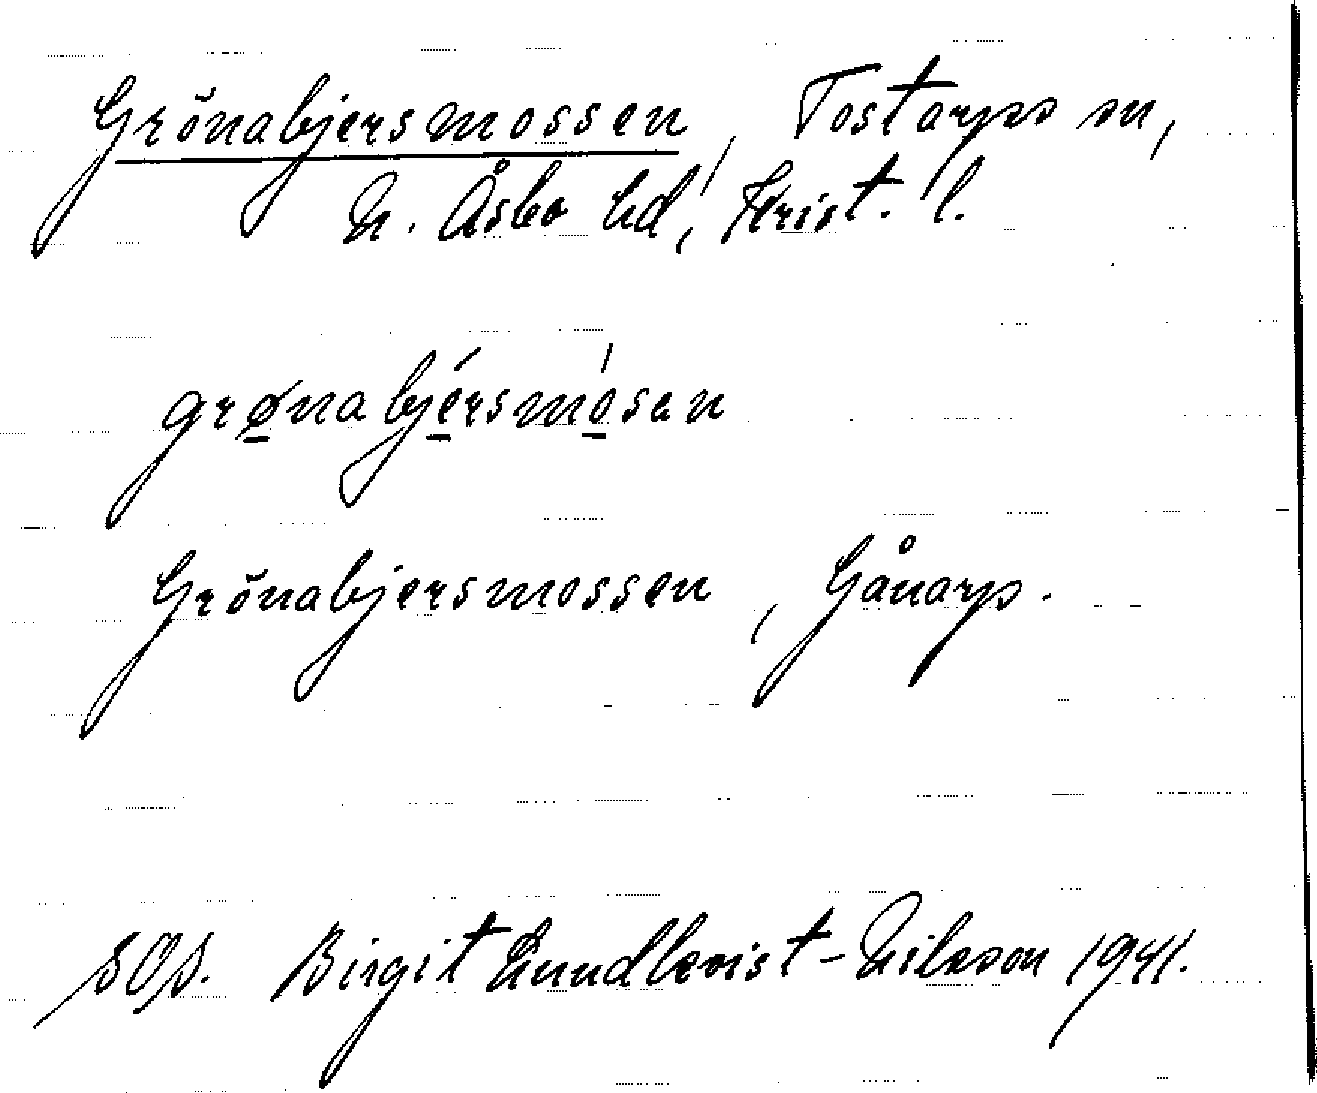 Grönabjersmossen, Tostarps sn,
N. Åsbo hd, Krist. l.
grønabjérsmósen
Grönabjersmossen, Gånarp.
SOS. Birgit Lundkvist-Nilsson 1941.